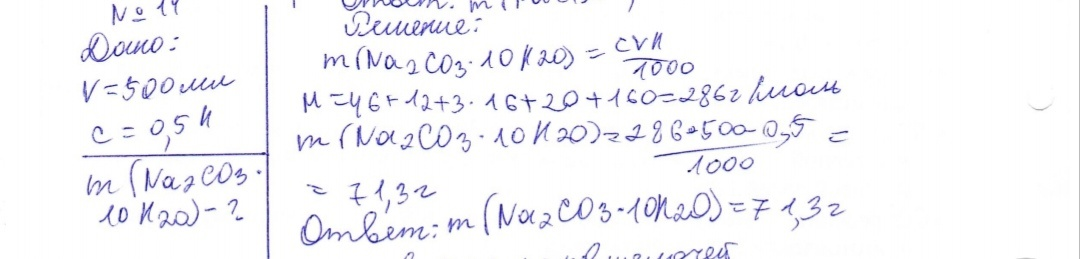 № 14
Дано:
V = 500 мл
c = 0,5 н
m (Na2CO3 ·
10H2O) - ?
Ответ: m (
Решение:
m (Na2CO3 · 10H2O) = CVM / 1000
M = 46 + 12 + 3 · 16 + 20 + 160 = 286 г/моль
m (Na2CO3 · 10H2O) = 286 · 500 · 0,5 / 1000 =
= 71,3 г
Ответ: m (Na2CO3 · 10H2O) = 71,3 г